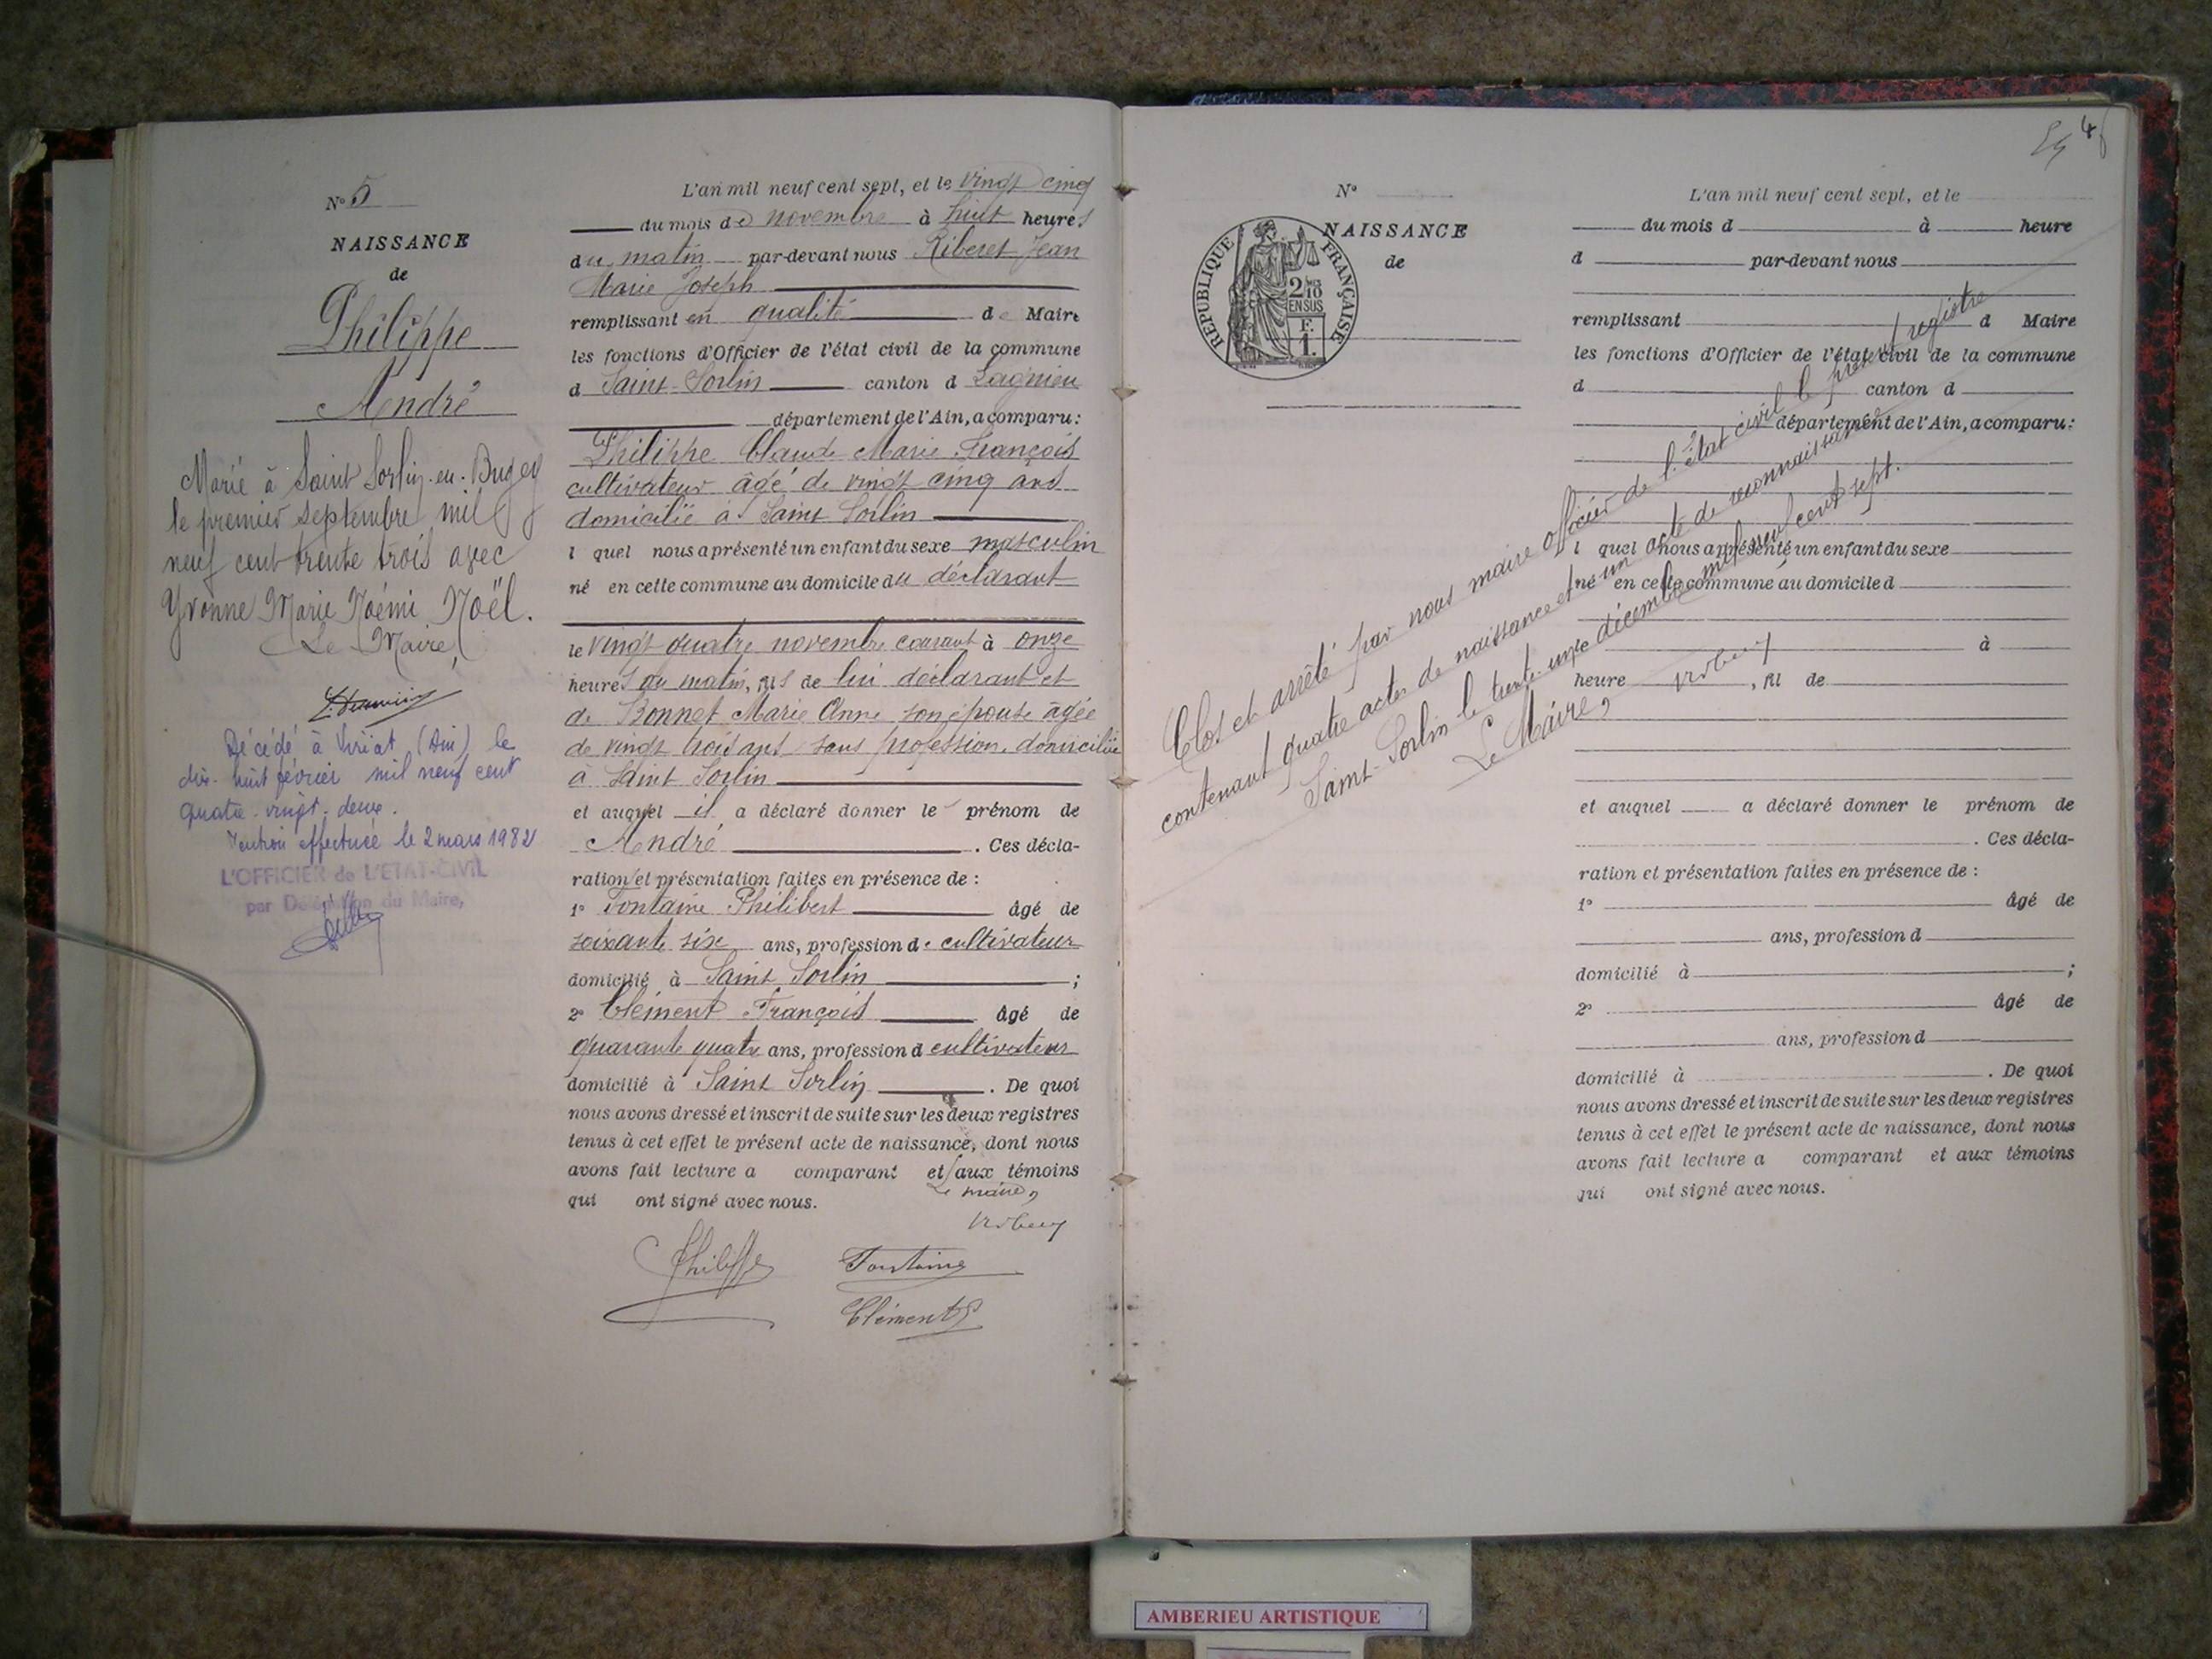 N° 5
NAISSANCE
de
Philippe
André
Marié à Saint Sorlin-en-Bugey
le premier septembre mil
neuf cent trente trois avec
Yvonne Marie Noémi Noël.
Le Maire,
Décédé à Viriat (Ain) le
dix-huit février mil neuf cent
quatre-vingt-deux.
Mention effectuée le 2 mars 1982
L'OFFICIER de L'ETAT-CIVIL
par Délégation du Maire,
L'an mil neuf cent sept, et le vingt cinq
du mois de novembre à huit heures
du matin par-devant nous Riberet Jean
Marie Joseph
remplissant en qualité de Maire
les fonctions d'Officier de l'état civil de la commune
d Saint-Sorlin canton d Lagnieu
département de l'Ain, a comparu :
Philippe Claude Marie François
cultivateur âgé de vingt cinq ans
domicilié à Saint Sorlin
l quel nous a présenté un enfant du sexe masculin
né en cette commune au domicile du déclarant
le vingt quatre novembre courant à onze
heures du matin, fils de lui déclarant et
de Bonnet Marie Anne son épouse âgée
de vingt trois ans sans profession, domiciliée
à Saint Sorlin
et auquel il a déclaré donner le prénom de
André . Ces décla-
ration et présentation faites en présence de :
1° Fontaine Philibert âgé de
soixante six ans, profession de cultivateur
domicilié à Saint Sorlin ;
2° Clément François âgé de
quarante quatre ans, profession d cultivateur
domicilié à Saint Sorlin . De quoi
nous avons dressé et inscrit de suite sur les deux registres
tenus à cet effet le présent acte de naissance, dont nous
avons fait lecture a comparant et aux témoins
qui ont signé avec nous.
Le maire,
Philippe Fontaine
Clément
N°
NAISSANCE
de
REPUBLIQUE FRANÇAISE
2/10
EN SUS
F.
1.
L'an mil neuf cent sept, et le
du mois d à heure
d par-devant nous
remplissant d Maire
les fonctions d'Officier de l'état civil de la commune
d canton d
département de l'Ain, a comparu :
l quel nous a présenté un enfant du sexe
né en cette commune au domicile d
le à
heure , fil de
et auquel a déclaré donner le prénom de
. Ces décla-
ration et présentation faites en présence de :
1° âgé de
ans, profession d
domicilié à ;
2° âgé de
ans, profession d
domicilié à . De quoi
nous avons dressé et inscrit de suite sur les deux registres
tenus à cet effet le présent acte de naissance, dont nous
avons fait lecture a comparant et aux témoins
qui ont signé avec nous.
Clos et arrêté par nous maire officier de l'état civil le présent registre
contenant quatre actes de naissance et un acte de reconnaissance
Saint-Sorlin le trente un décembre mil neuf cent sept.
Le Maire,
AMBERIEU ARTISTIQUE